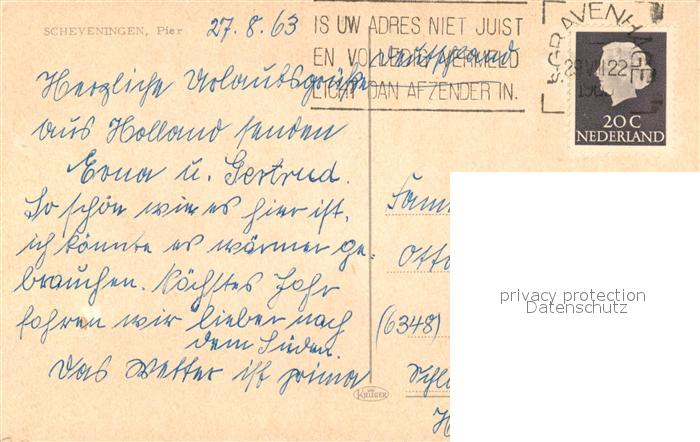 SCHEVENINGEN, Pier
27.8.63
IS UW ADRES NIET JUIST
EN VOLLEDIG VERMELD
LICHT DAN AFZENDER IN.
'S GRAVENHAGE
29 VIII 22
20 C
NEDERLAND
Deutschland
Herzliche Urlaubsgrüße
aus Holland senden
Erna u. Gertrud.
So schön wie es hier ist,
ich könnte es wärmer ge-
brauchen. Nächstes Jahr
fahren wir lieber nach
dem Süden.
Das Wetter ist prima
Fam
Otto
(6348)
KRÜGER
privacy protection
Datenschutz